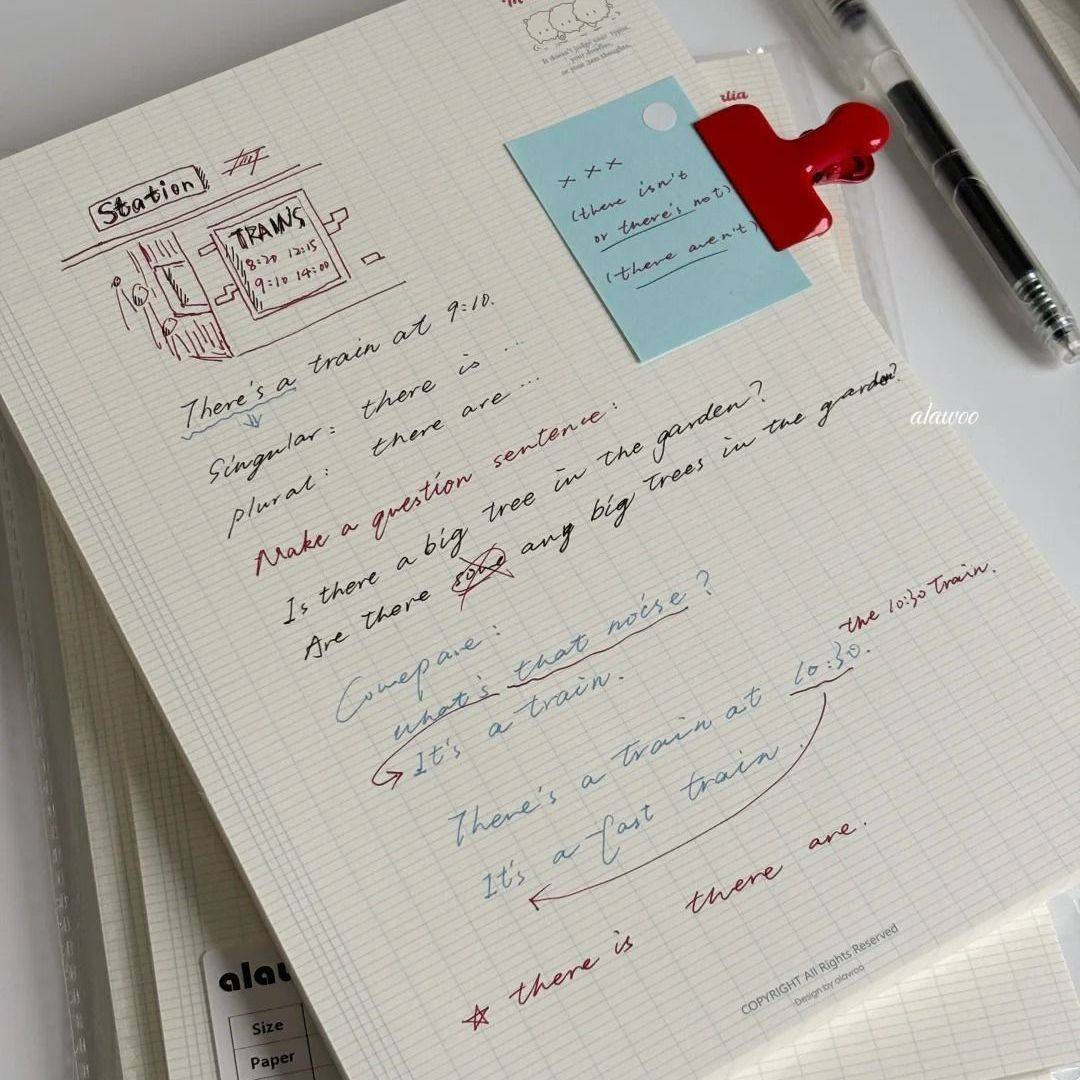 It doesn't judge your typos,
your doodles,
or your 2am thoughts.
Station
TRAINS
8:20 12:15
9:10 14:00
x x x
(there isn't
or there's not)
(there aren't)
There's a train at 9:10.
Singular: there is ...
plural: there are ...
Make a question sentence:
Is there a big tree in the garden?
Are there some any big trees in the garden?
Compare:
what's that noise?
It's a train.
the 10:30 train.
There's a train at 10:30.
It's a fast train.
☆ there is there are.
COPYRIGHT All Rights Reserved
Design by alawoo
alawoo
Size
Paper